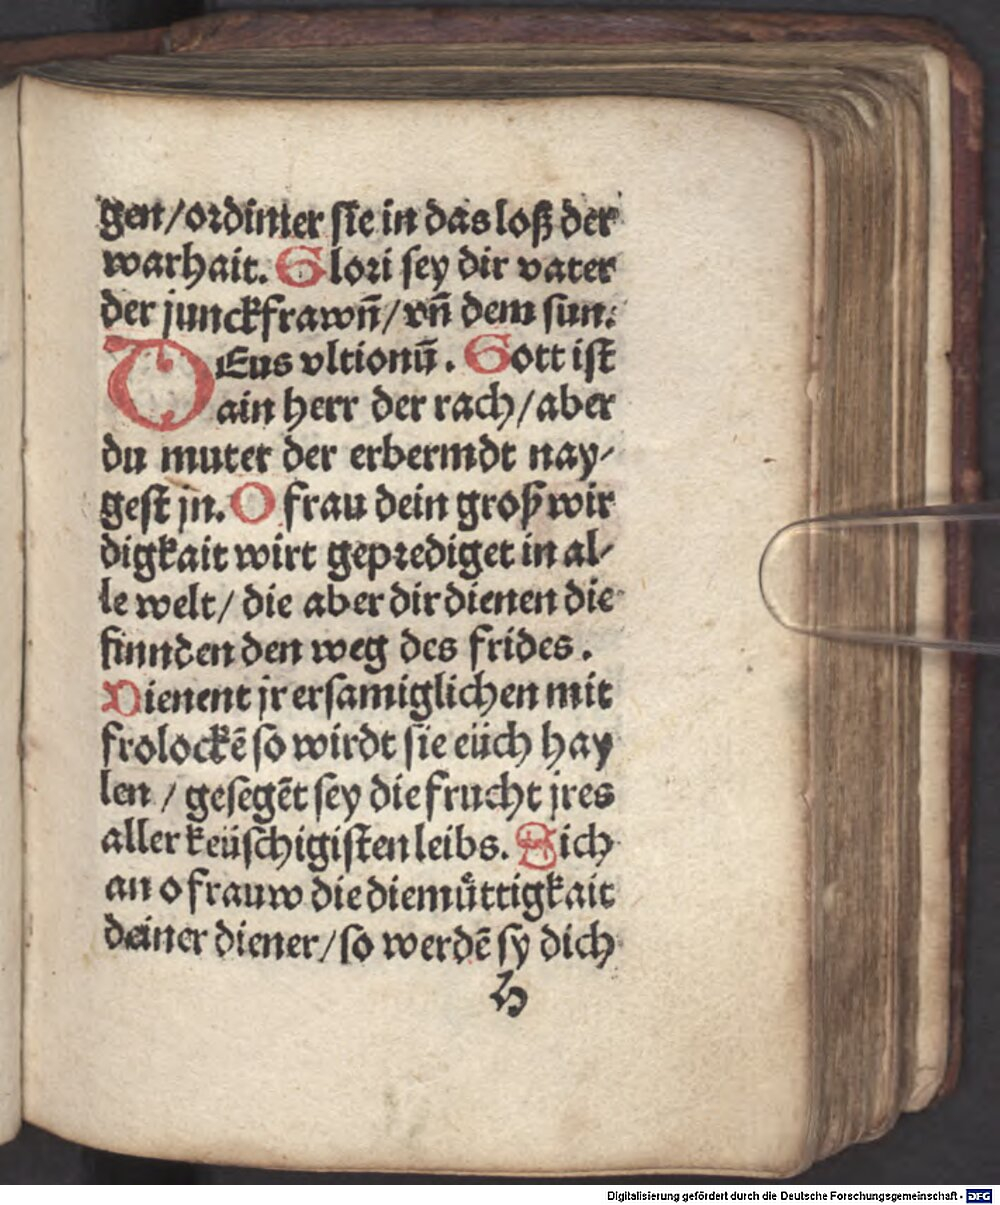 gen/ordinier sie in das loß der
warhait. Glori sey dir vater
der junckfrawn̄/vn̄ dem sun.
DEus vltionū. Gott ist
ain herr der rach/aber
du muter der erbermdt nay-
gest jn. O frau dein groß wir
digkait wirt geprediget in al-
le welt/ die aber dir dienen die
finnden den weg des frides.
Dienent jr ersamiglichen mit
frolockē so wirdt sie eüch hay
len / gesegēt sey die frucht jres
aller keüschigisten leibs. Sich
an o frauw die diemuͤttigkait
deiner diener/so werdē sy dich
h
Digitalisierung gefördert durch die Deutsche Forschungsgemeinschaft - DFG